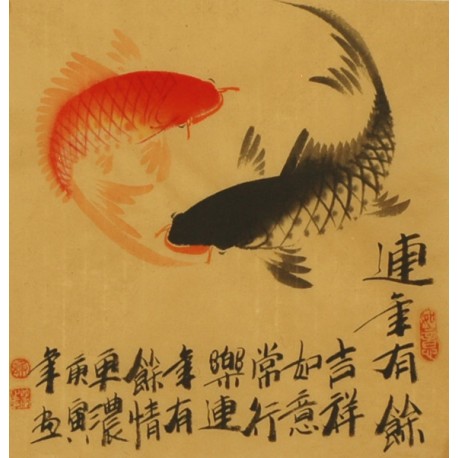 連年有餘
吉祥
如意
常行
樂連
年有
餘情
更濃
庚寅
年画